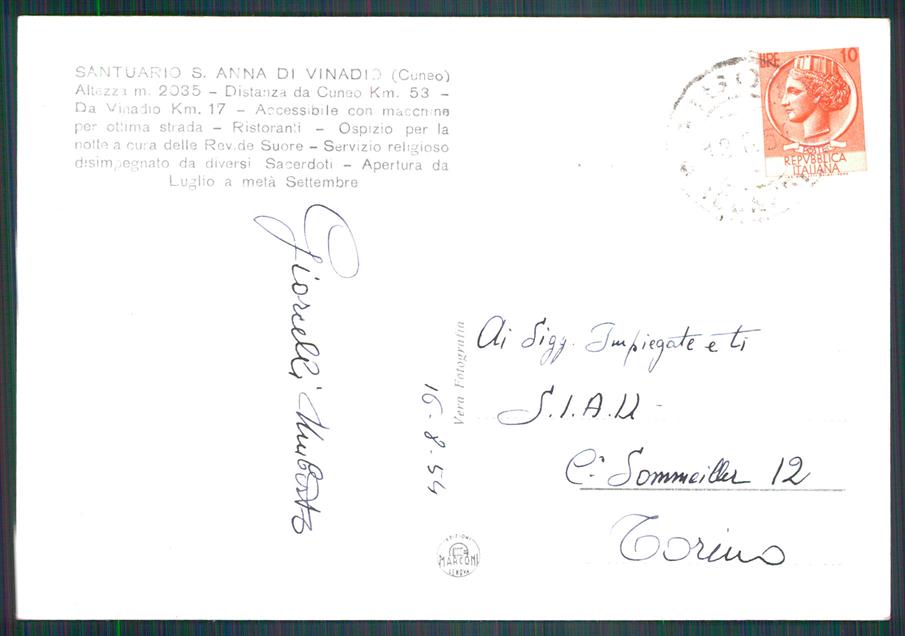 SANTUARIO S. ANNA DI VINADIO (Cuneo)
Altezza m. 2035 - Distanza da Cuneo Km. 53 -
Da Vinadio Km. 17 - Accessibile con macchine
per ottima strada - Ristoranti - Ospizio per la
notte a cura delle Rev.de Suore - Servizio religioso
disimpegnato da diversi Sacerdoti - Apertura da
Luglio a metà Settembre
LIRE 10
POSTE
REPVBBLICA
ITALIANA
Giorcelli Umberto
16-8-54
Vera Fotografia
Ai Sigg. Impiegate e ti
S.I.A.U
C. Sommeiller 12
Torino
EDIZIONI
MARCONI
GENOVA